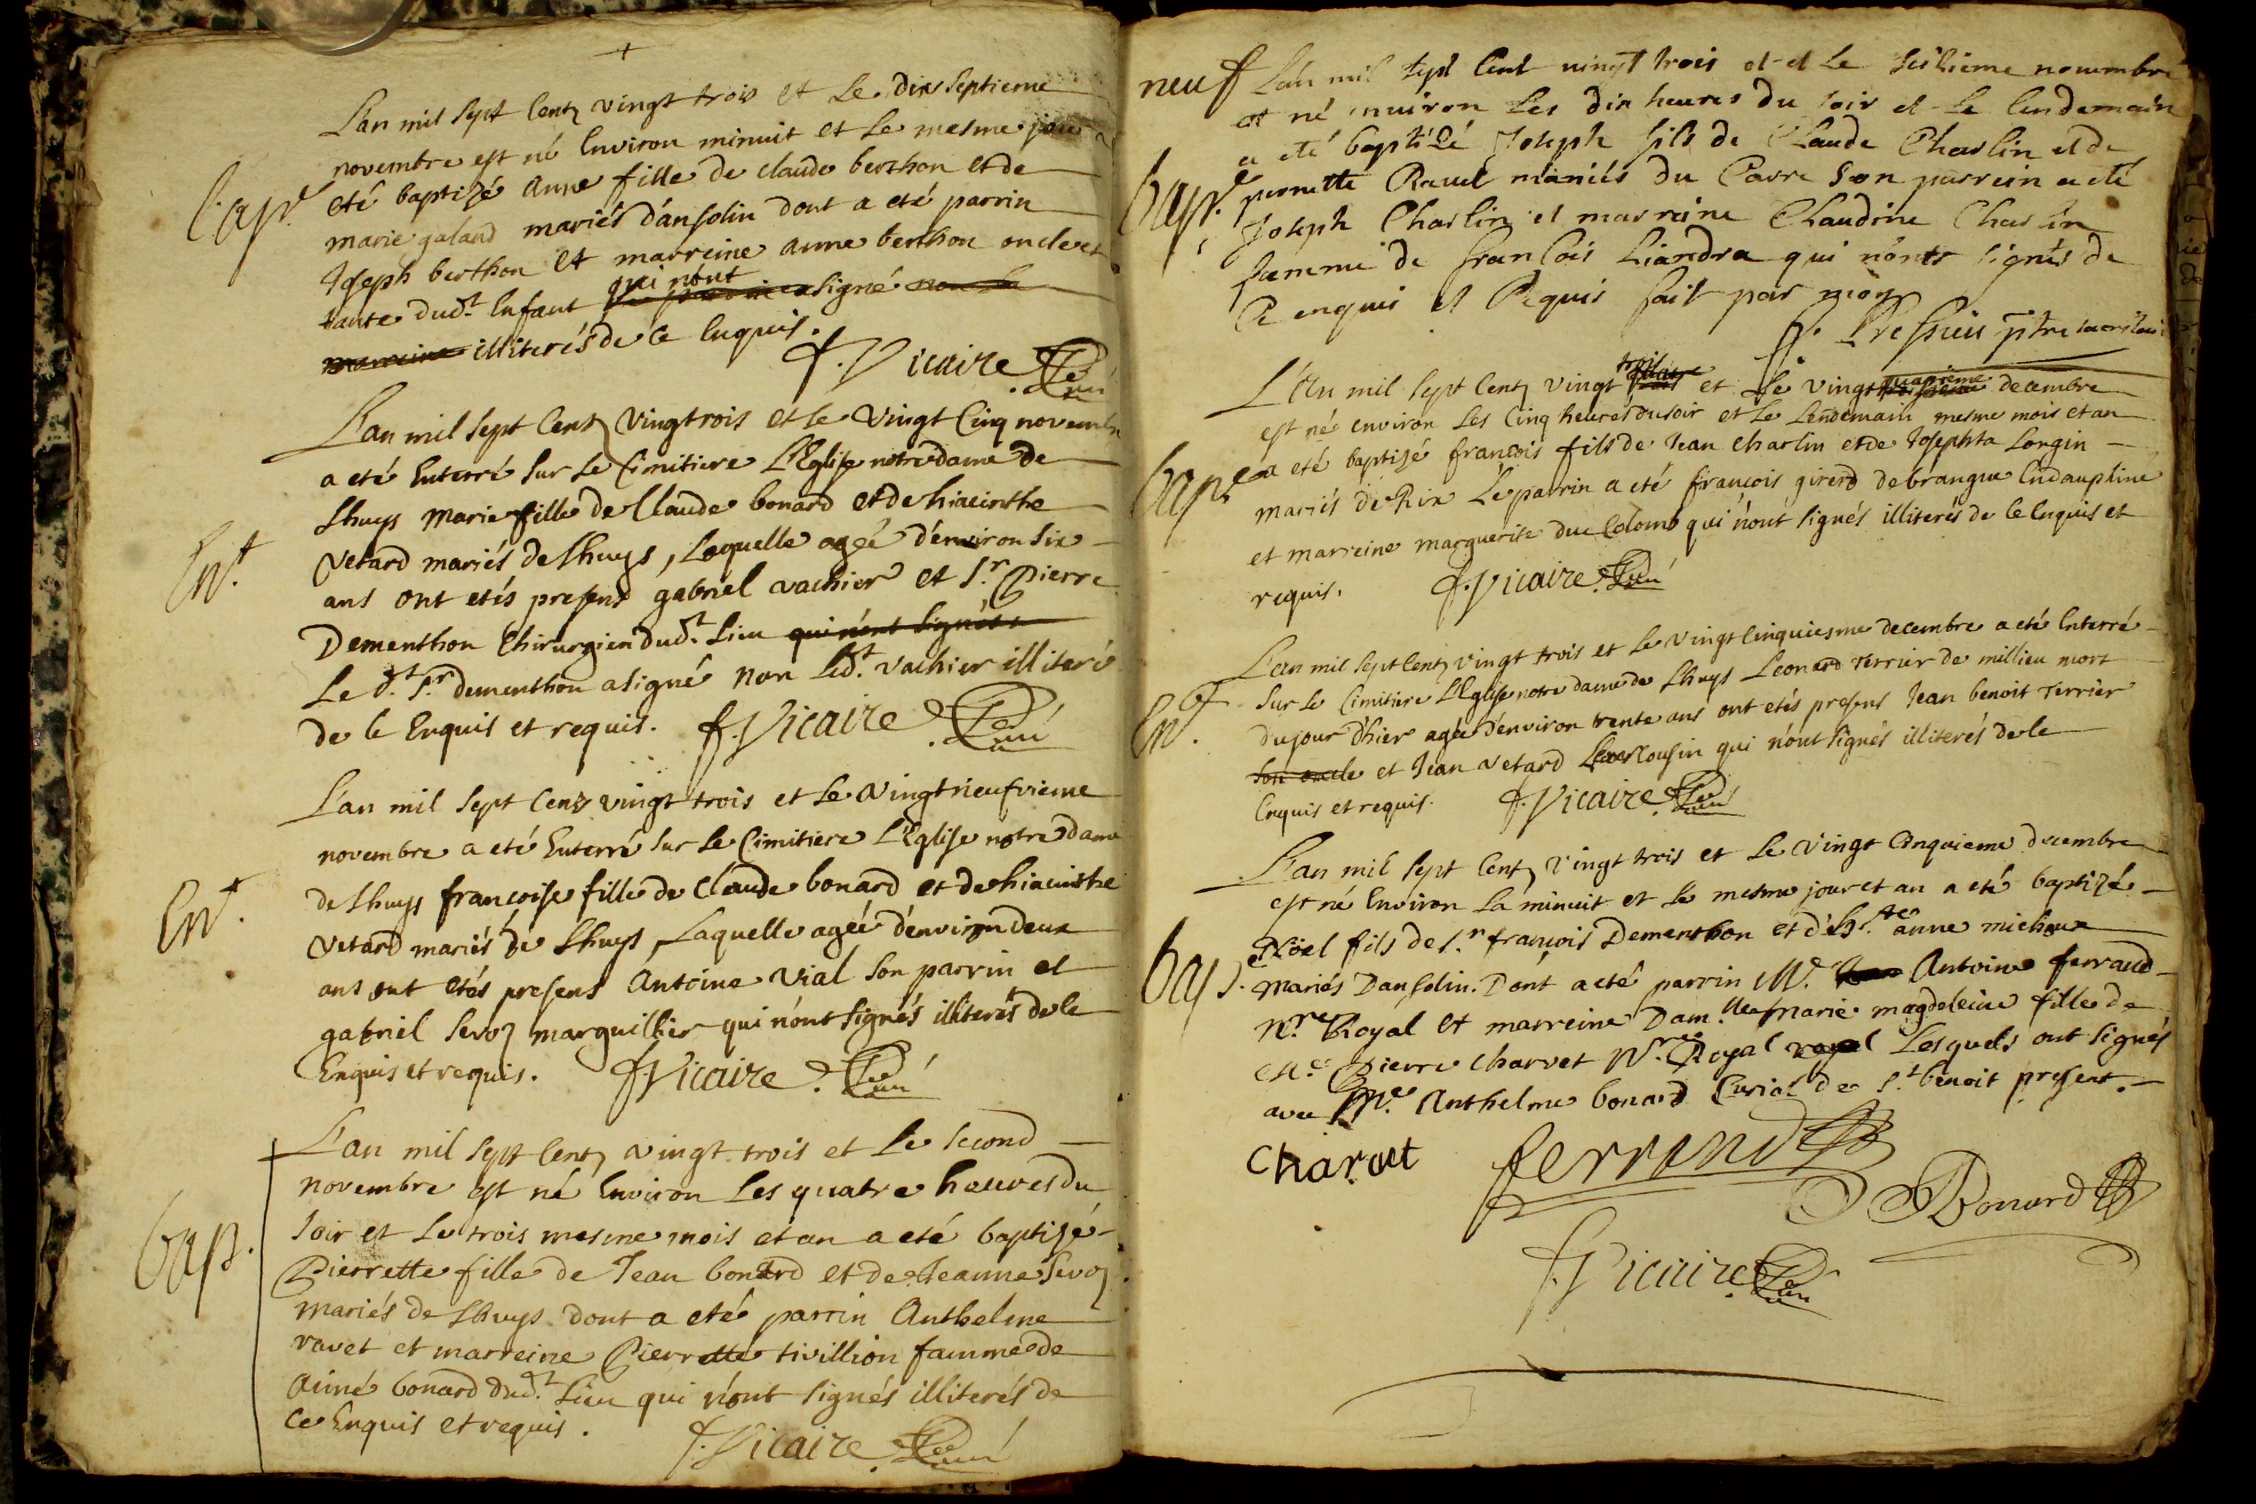 L'an mil sept Centz vingt trois et Le dix septieme
novembre est né Environ minuit et Le mesme jour a
Bap.e
eté baptizé Anne fille de claude berthon et de
marie galand mariés d'ansolin dont a eté parrin
Joseph berthon et marreine anne berthon oncle et
tante dud.t Enfant qui n'ont signé
illiterés de Ce Enquis.
f. Vicaire Curé
L'an mil sept Centz Vingtrois et le Vingt Cinq novembre
a eté Enterré sur Le Cimitiere L'Eglise notre dame de
Lhuys Marie fille de Claude bonard et de hiacinthe
Ent.
Vetard mariés de Lhuys, Laquelle ageé d'environ six
ans ont etés presens gabriel vachier et S.r Pierre
Dementhon Chirurgien dud.t Lieu qui n'ont signés
Le d.t S.r dementhon a signé non Led.t vachier illiteré
de Ce Enquis et requis. f. Vicaire Curé
L'an mil sept Centz vingt trois et Le Vingt neufvieme
novembre a eté Enterré sur Le Cimitiere L'Eglise notre dame
Ent.
de Lhuys francoise fille de Claude bonard et de hiacinthe
Vetard mariés de Lhuys, Laquelle ageé d'environ deux
ans ont etés presens Antoine Vial son parrin et
gabriel Sevoz marguillier qui n'ont signés illiterés de Ce
Enquis et requis. f. Vicaire Curé
L'an mil sept Centz vingt trois et Le second
novembre est né Environ Les quatre heures du
soir et Le trois mesme mois et an a eté baptizé
Bap.
Pierrette fille de Jean bonard et de Jeanne Sevoz
mariés de Lhuys dont a eté parrin Anthelme
ravet et marreine Pierrette tivillion famme de
aimé bonard dud.t Lieu qui n'ont signés illiterés de
Ce Enquis et requis.
f. Vicaire Curé
neuf L'an mil sept Cent vingt trois et et Le seizieme novembre
et né environ Les dix heures du soir et Le lendemain
a eté baptizé Joseph fils de Claude Charlin et de
Bap.e
pernette Ravet mariés du Cavre son parrein a eté
Joseph Charlin et marraine Claudine Charlin
famme de francois Liandra qui n'onts signés de
Ce enquis et Requis fait par moy
f. ptre
L'An mil sept Centz vingt trois et Le vingt quatrieme decembre
est né environ Les Cinq heures du soir et Le Lendemain mesme mois et an
Bap.e
a eté baptizé francois fils de Jean charlin et de Josephta Longin
mariés de Rix Le parrin a eté francois girerd de brangue En dauphiné
et marreine marguerite du Colomb qui n'ont signés illiterés de Ce Enquis et
requis. f. Vicaire Curé
L'an mil sept Centz vingt trois et Le Vingt Cinquiesme decembre a eté Enterré
sur Le Cimitiere L'Eglise notre dame de Lhuys Leonard Terrier de millieu mort
Ent.
du jour d'hier ageé d'environ trente ans ont etés presens Jean benoit Terrier
son oncle et Jean Vetard cousin qui n'ont signés illiterés de Ce
Enquis et requis. f. Vicaire Curé
L'an mil sept Centz Vingt trois et Le Vingt Cinquieme decembre
est né Environ La minuit et Le mesme jour et an a eté baptizé
Noel fils de S.r francois Dementhon et d'h.te anne michoux
Bap.
mariés D'ansolin. Dont a eté parrin M.e Antoine ferrand
N.re Royal et marreine Dam.lle Marie magdeleine fille de
M.e Pierre Charvet N.re Royal royal Lesquels ont signés
avec M.e Anthelme bonard Curial de S.t benoit present.
Charvet ferrand
ABonard
f. Vicaire Curé